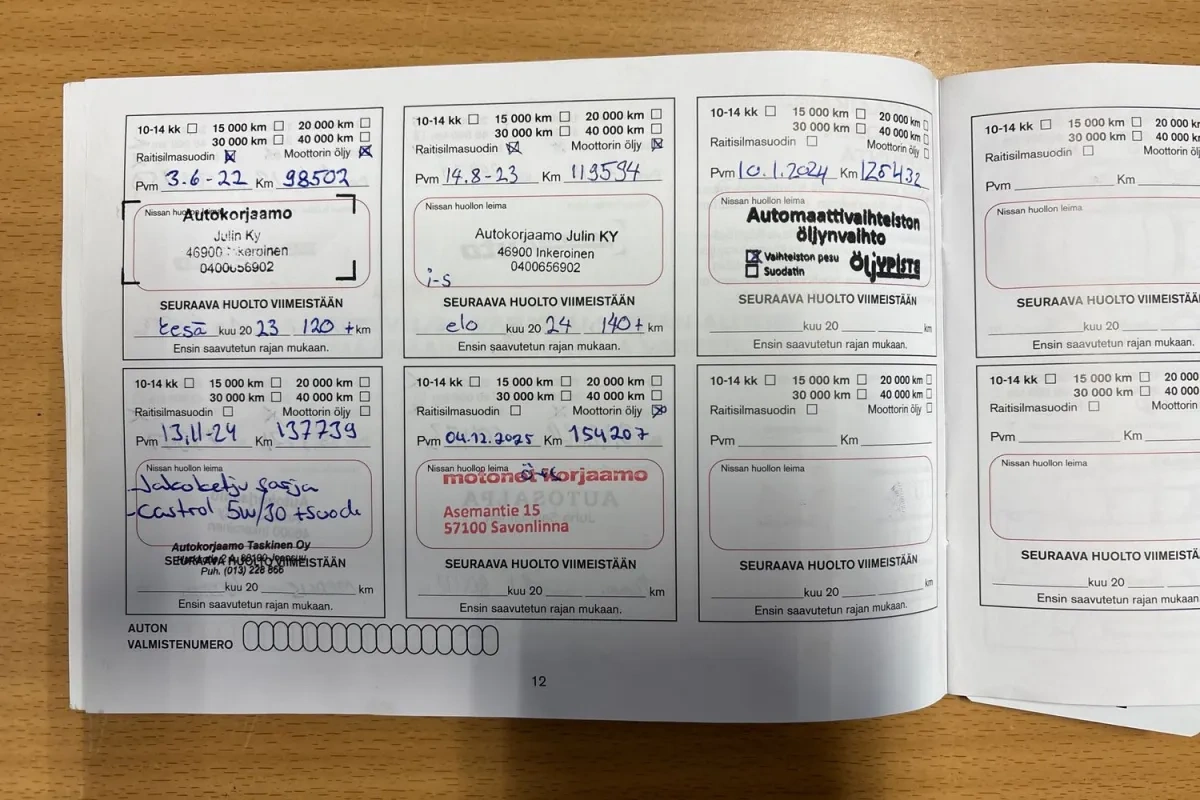 10-14 kk 15 000 km 20 000 km
30 000 km 40 000 km
Raitisilmasuodin Moottorin öljy
Pvm 3.6-22 Km 98502
Nissan huollon leima
Autokorjaamo
Julin Ky
46900 Inkeroinen
0400656902
SEURAAVA HUOLTO VIIMEISTÄÄN
kesä kuu 20 23 120 + km
Ensin saavutetun rajan mukaan.
10-14 kk 15 000 km 20 000 km
30 000 km 40 000 km
Raitisilmasuodin Moottorin öljy
Pvm 14.8-23 Km 119594
Nissan huollon leima
Autokorjaamo Julin KY
46900 Inkeroinen
0400656902
i-s
SEURAAVA HUOLTO VIIMEISTÄÄN
elo kuu 20 24 140+ km
Ensin saavutetun rajan mukaan.
10-14 kk 15 000 km 20 000 km
30 000 km 40 000 km
Raitisilmasuodin Moottorin öljy
Pvm 10.1.2024 Km 125432
Nissan huollon leima
Automaattivaihteiston
öljynvaihto
Vaihteiston pesu
Suodatin
ÖLJYPISTE
SEURAAVA HUOLTO VIIMEISTÄÄN
kuu 20 km
Ensin saavutetun rajan mukaan.
10-14 kk 15 000 km 20 000
30 000 km 40 000
Raitisilmasuodin
Pvm Km
Nissan huollon leima
SEURAAVA HUOLTO VIIMEISTÄÄN
kuu 20
Ensin saavutetun rajan mukaan.
10-14 kk 15 000 km 20 000 km
30 000 km 40 000 km
Raitisilmasuodin Moottorin öljy
Pvm 13.11-24 Km 137739
Nissan huollon leima
-Jakoketju sarja
-Castrol 5W/30 +Suod.
Autokorjaamo Taskinen Oy
SEURAAVA HUOLTO VIIMEISTÄÄN
Puh. (013) 228 866
kuu 20 km
Ensin saavutetun rajan mukaan.
10-14 kk 15 000 km 20 000 km
30 000 km 40 000 km
Raitisilmasuodin Moottorin öljy
Pvm 04.12.2025 Km 154207
Nissan huollon leima
motonet korjaamo
Asemantie 15
57100 Savonlinna
SEURAAVA HUOLTO VIIMEISTÄÄN
kuu 20 km
Ensin saavutetun rajan mukaan.
10-14 kk 15 000 km 20 000 km
30 000 km 40 000 km
Raitisilmasuodin Moottorin öljy
Pvm Km
Nissan huollon leima
SEURAAVA HUOLTO VIIMEISTÄÄN
kuu 20 km
Ensin saavutetun rajan mukaan.
10-14 kk 15 000 km 20 000
30 000 km 40 000
Raitisilmasuodin
Pvm Km
Nissan huollon leima
SEURAAVA HUOLTO VIIMEISTÄÄN
kuu 20
Ensin saavutetun rajan mukaan.
AUTON
VALMISTENUMERO
12